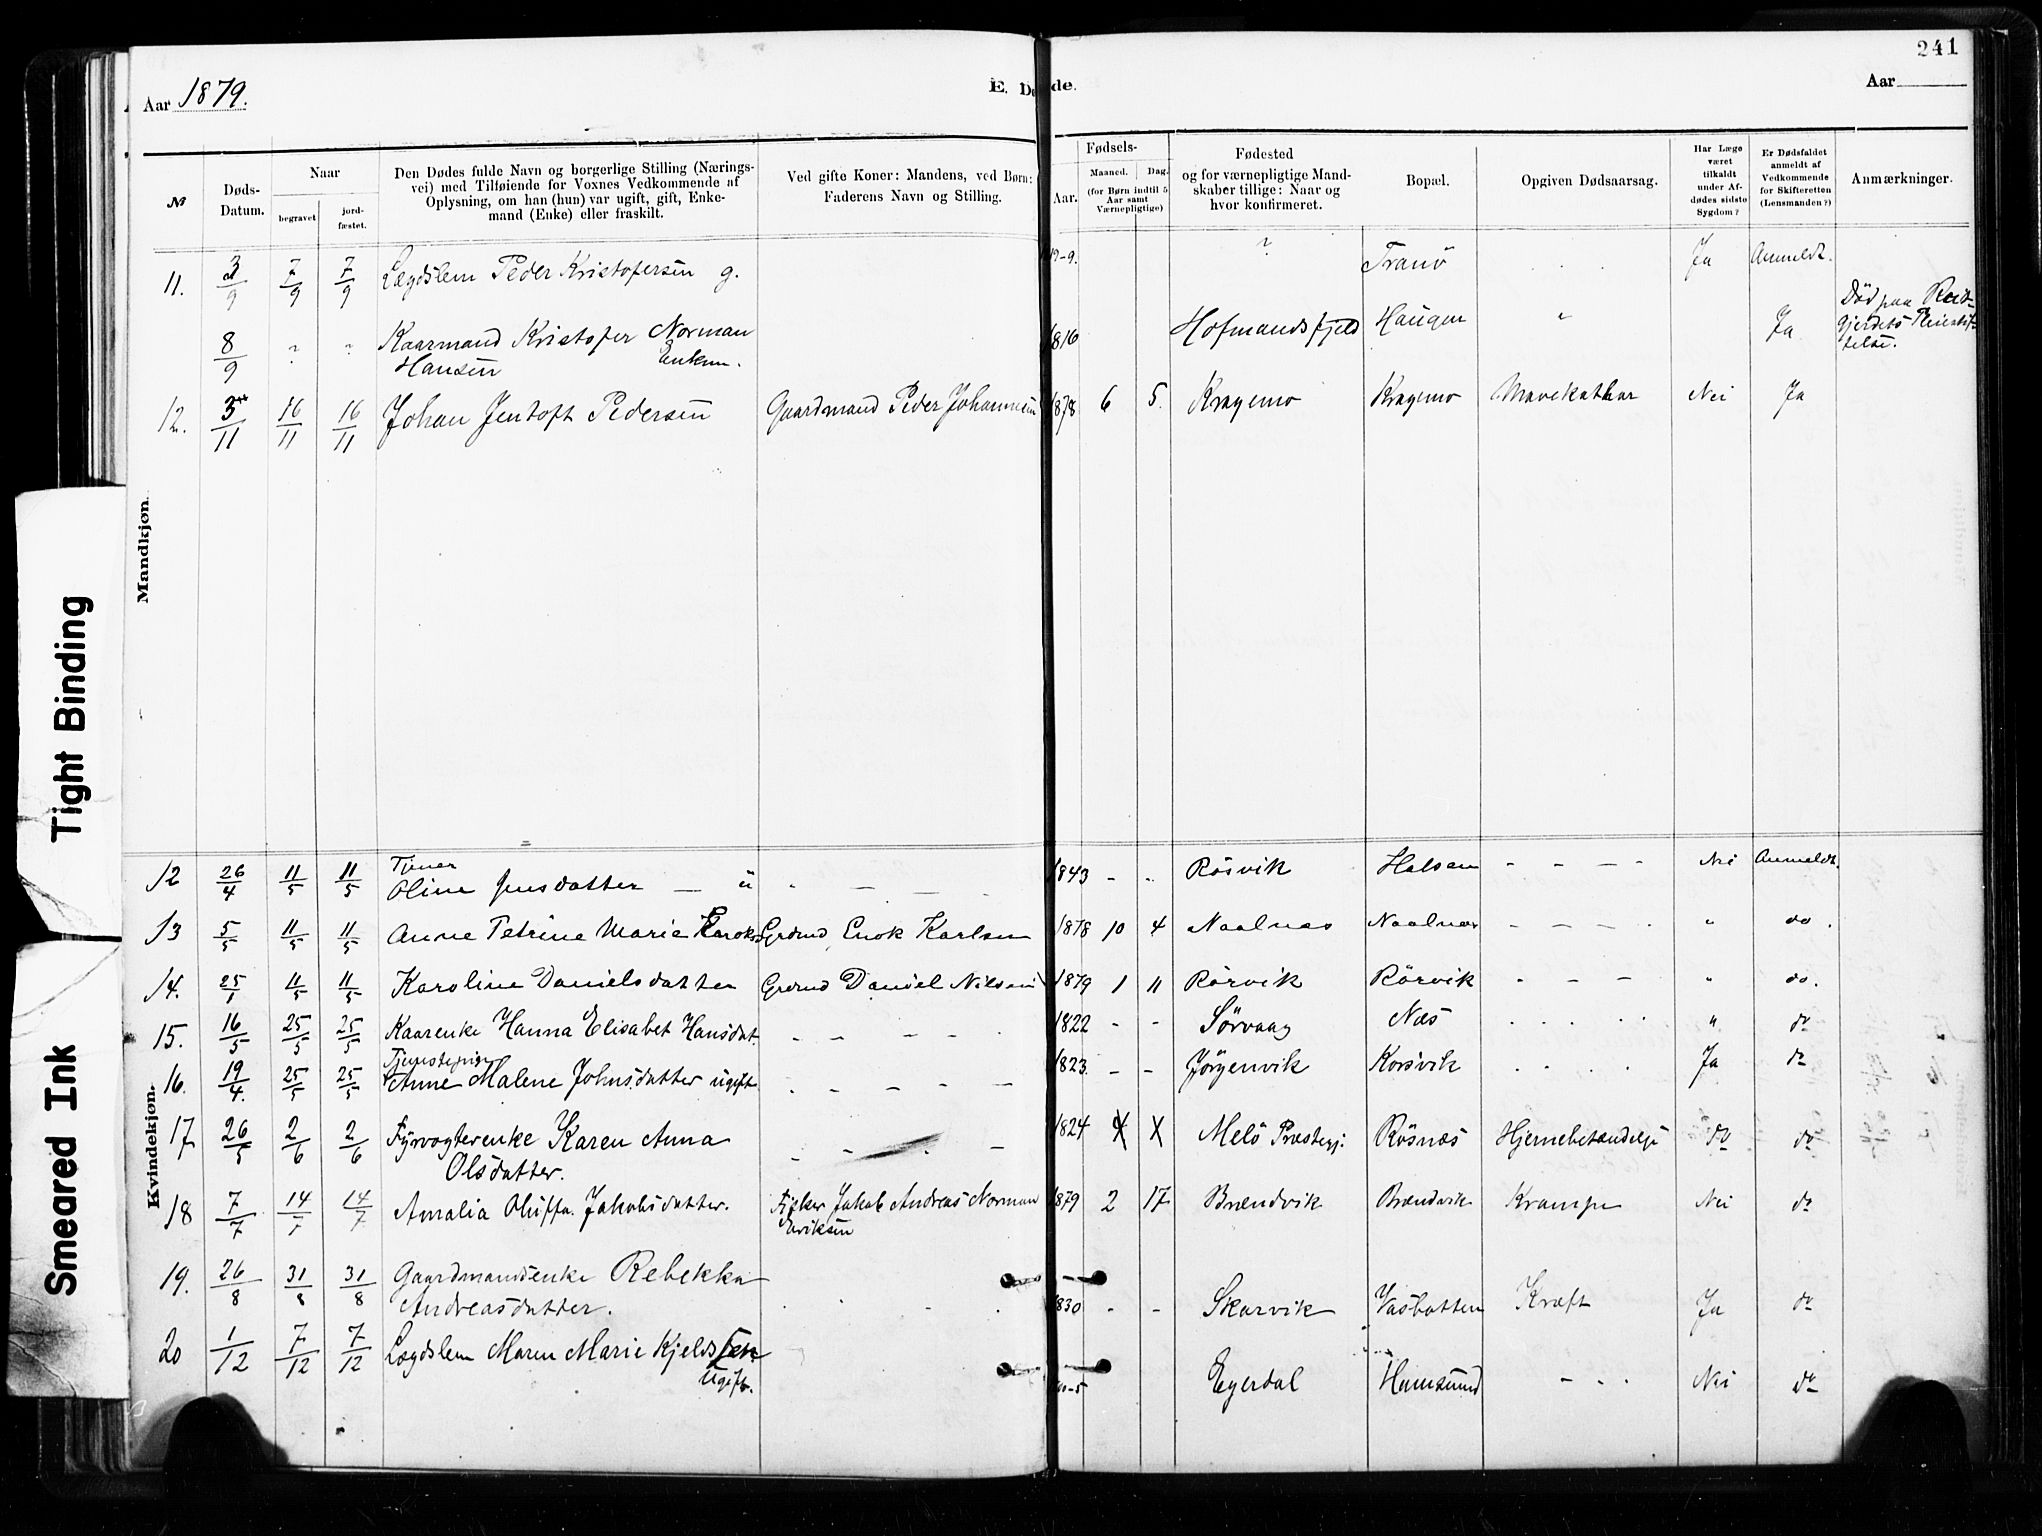 241
Aar 1879.
E. Dø de.
Aar
Fødsels-
№
Døds-
Datum.
Naar
begravet
jord-
fæstet.
Den Dødes fulde Navn og borgerlige Stilling (Nærings-
vei) med Tilføiende for Voxnes Vedkommende af
Oplysning, om han (hun) var ugift, gift, Enke-
mand (Enke) eller fraskilt.
Ved gifte Koner: Mandens, ved Børn:
Faderens Navn og Stilling.
Aar.
Maaned. Dag.
(for Børn indtil 5
Aar samt
Værnepligtige)
Fødested
og for værnepligtige Mand-
skaber tillige: Naar og
hvor konfirmeret.
Bopæl.
Opgiven Dødsaarsag.
Har Læge
været
tilkaldt
under Af-
dødes sidste
Sygdom?
Er Dødsfaldet
anmeldt af
Vedkommende
for Skifteretten
(Lensmanden?)
Anmærkninger.
Mandkjøn.
11. 3/9 7/9 7/9 Lægdslem Peder Kristofersen g. ? Tranö Ja Anmeldt.
8/9 Kaarmand Kristofer Norman 1816 Hofmandsfjeld Haugen " Ja Död paa
Hansen Enkem.
12. 3/11 16/11 16/11 Johan Jentoft Pedersen Gaardmand Peder Johannesen 1878 6 5. Kragemo Kragemo Mavekathar Nei Ja
Kvindekjøn.
Tjener
12 26/4 11/5 11/5 Oline Jensdatter — u " — — — 1843 - " Rösvik Halsen - - - - Nei Anmeldt.
13 5/5 11/5 11/5 Anne Petrine Marie Grdmd Enok Karlsen 1878 10 4 Naalnæs Naalnæs - - - . " do.
14. 25/1 11/5 11/5 Karoline Danielsdatter Grdmd Daniel Nilsen 1879 1 11 Rörvik Rörvik - - - " do.
15. 16/5 25/5 25/5 Kaarenke Hanna Elisabet Hansdat. - - - - . 1822 - - Sörvaag Næs . . . . . " do
16. 19/4. 25/5 25/5 Anne Malene Johnsdatter ugift - - - - - 1823 - - Jörgenvik Korsvik . . . . Ja do
17 26/5 2/6 2/6 Fyrvogterenke Karen Anna - - . - 1824 X X Melö Præstegj. Rösnæs Hjernebetændelse do do
Olsdatter.
18 7/7 14/7 14/7 Amalia Oluffa Jakobsdatter. Fisker Jakob Andreas Norman 1879 2 17 Brændvik Brændvik Krampe Nei do
Eriksen
19. 26/8 31/8 31/8 Gaardmandsenke Rebekka
Andreasdatter. . . - . 1830 - - Skarvik Vasbotten Kræft Ja do
20 1/12 7/12 7/12 Lægdslem Maren Marie Kjeldsen
Ugift. Egerdal Hamsund - . . Nei do
Tight Binding
Smeared Ink